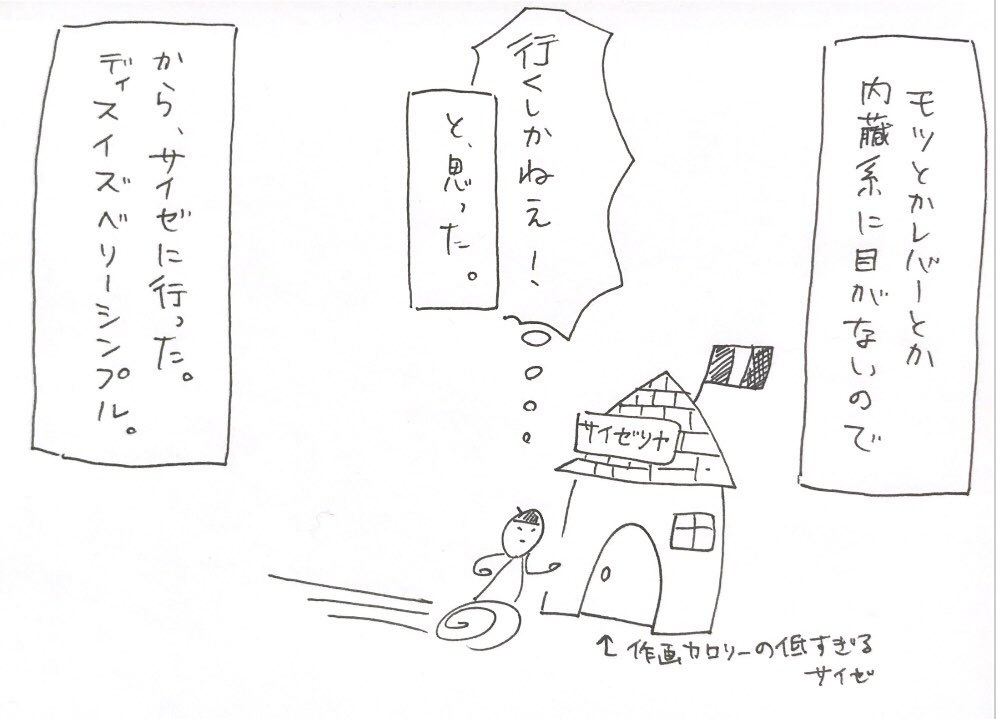 モツとかレバーとか
内臓系に目がないので
行くしかねえー、
と、思った。
サイゼリヤ
↑作画カロリーの低すぎる
サイゼ
から、サイゼに行った。
ディスイズベリーシンプル。